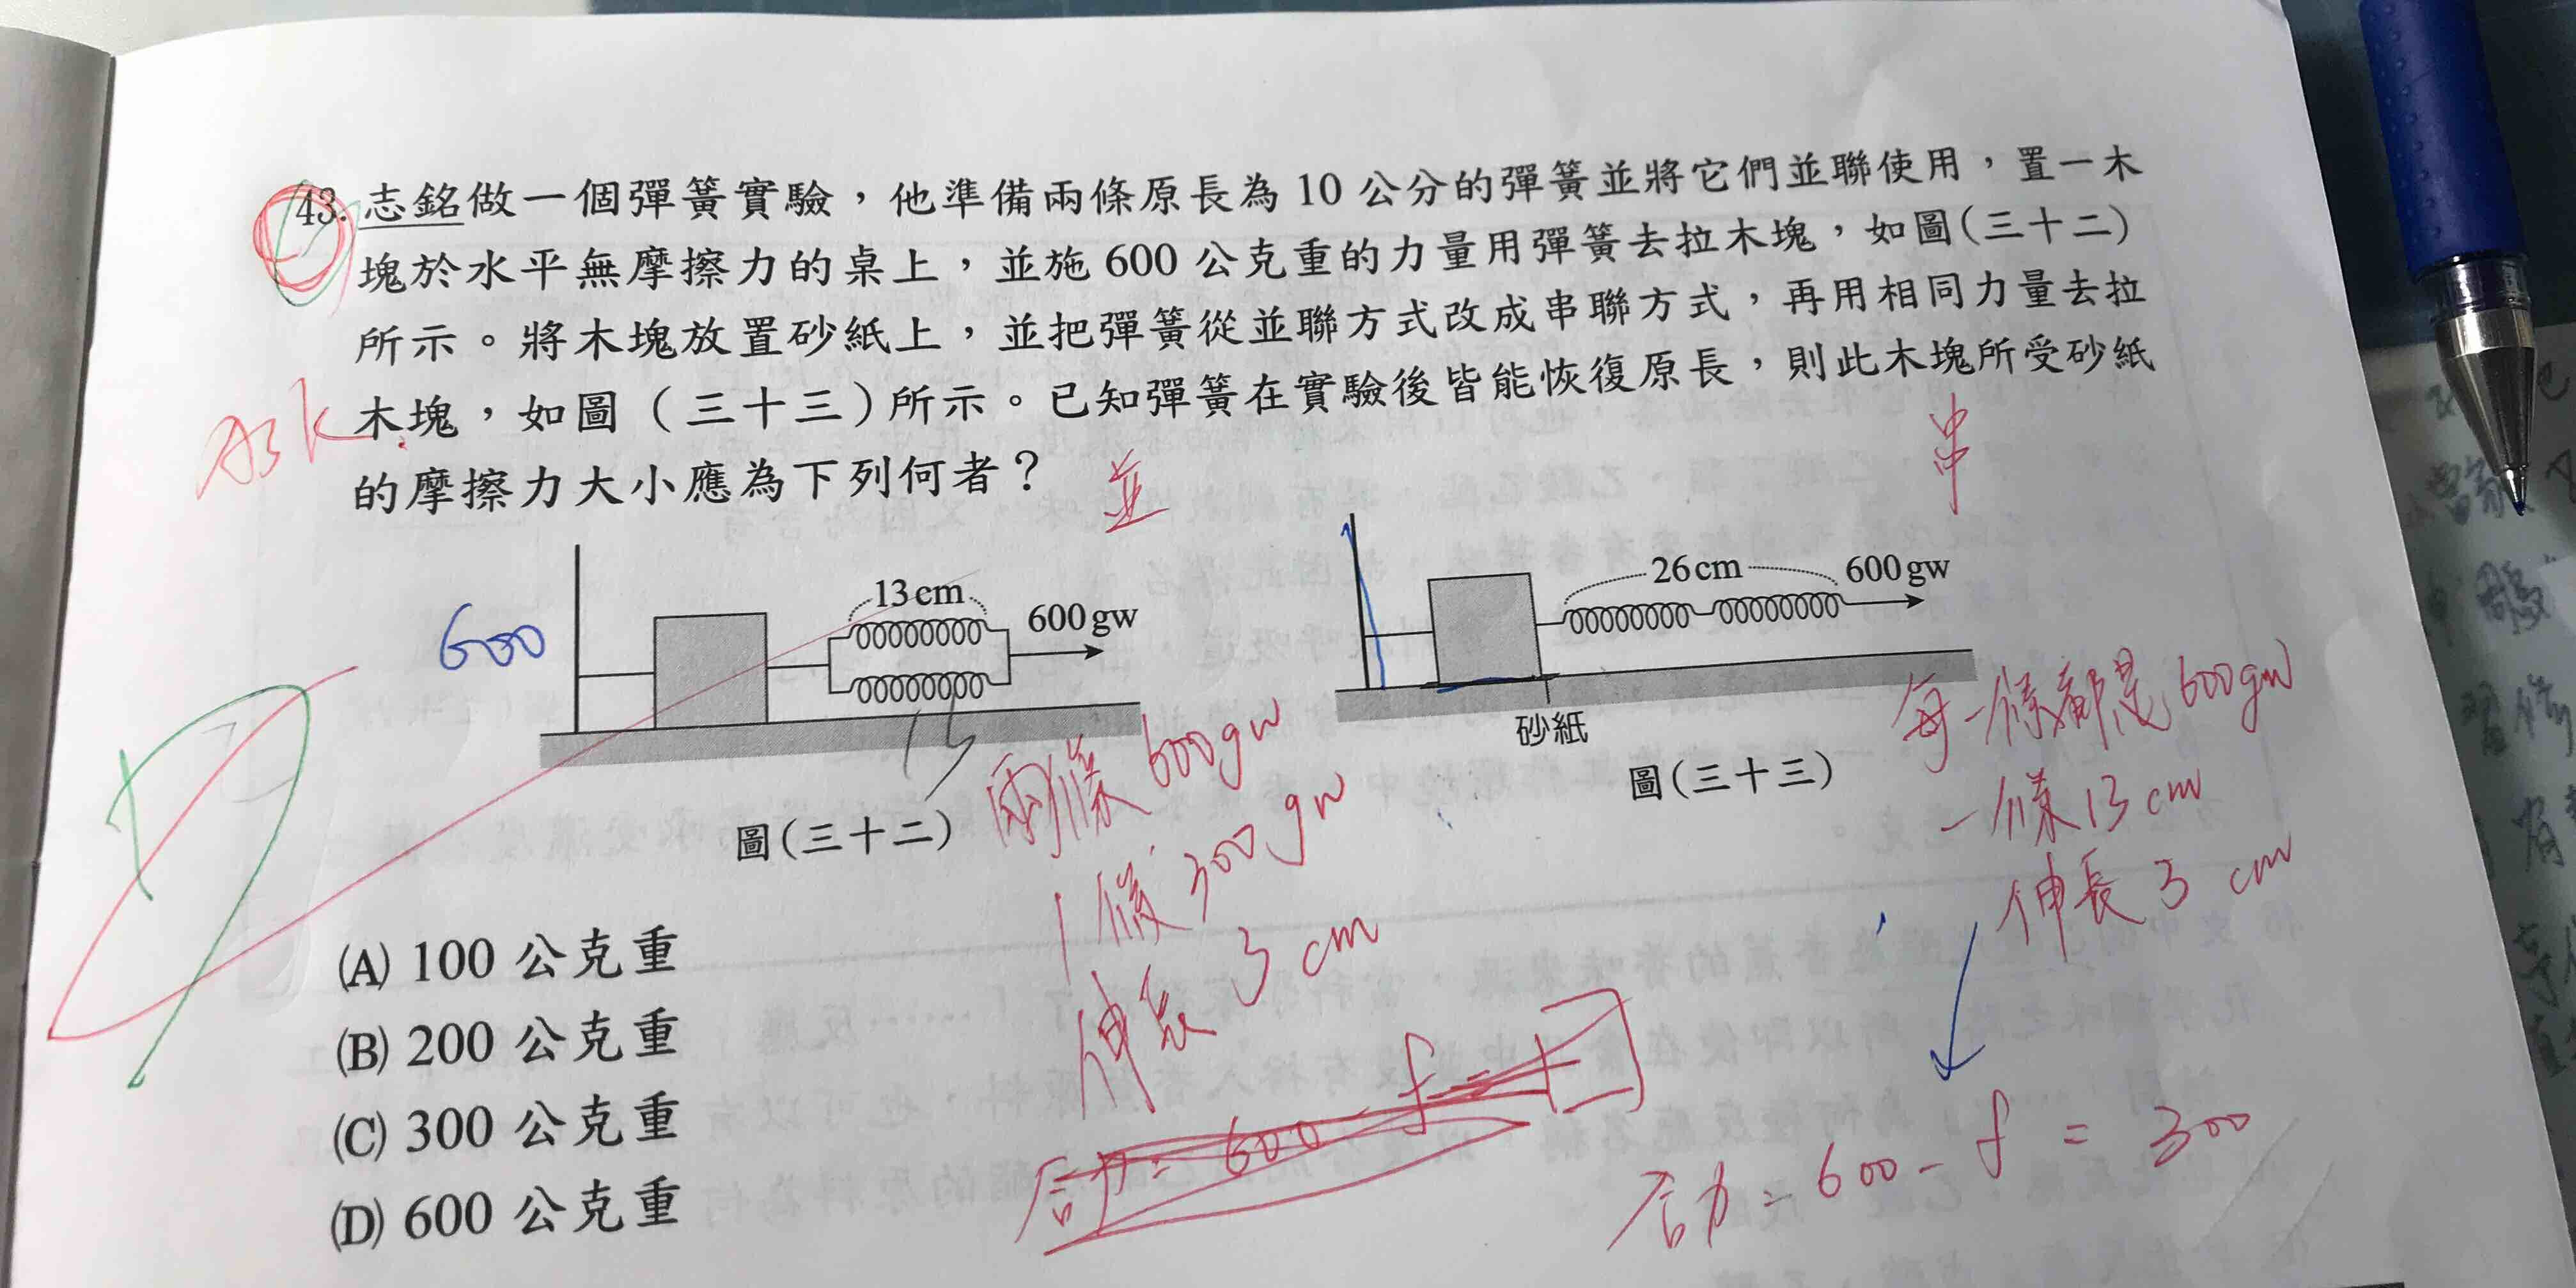 43. 志銘做一個彈簧實驗，他準備兩條原長為 10 公分的彈簧並將它們並聯使用，置一木
塊於水平無摩擦力的桌上，並施 600 公克重的力量用彈簧去拉木塊，如圖(三十二)
所示。將木塊放置砂紙上，並把彈簧從並聯方式改成串聯方式，再用相同力量去拉
木塊，如圖（三十三）所示。已知彈簧在實驗後皆能恢復原長，則此木塊所受砂紙
的摩擦力大小應為下列何者？
Ask
並
串
600
13 cm
600 gw
圖(三十二)
26 cm
600 gw
砂紙
圖(三十三)
兩條 600gw
1條 300gw
伸長 3 cm
每一條都是 600gw
一條 13 cm
伸長 3 cm
合力 = 600 - f = 300
(A) 100 公克重
(B) 200 公克重
(C) 300 公克重
(D) 600 公克重